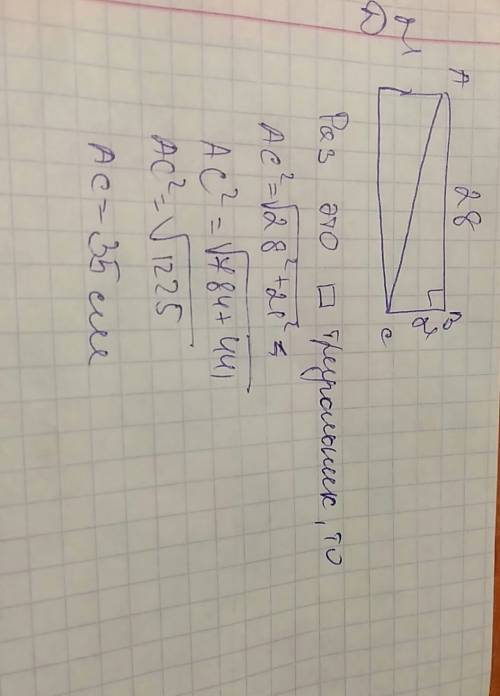 A 28 B
21 21
D C
Раз это □ треугольник, то
AC² = √28² + 21² =
AC² = √784 + 441
AC² = √1225
AC = 35 см